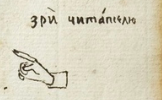 зрѝ читáтелю